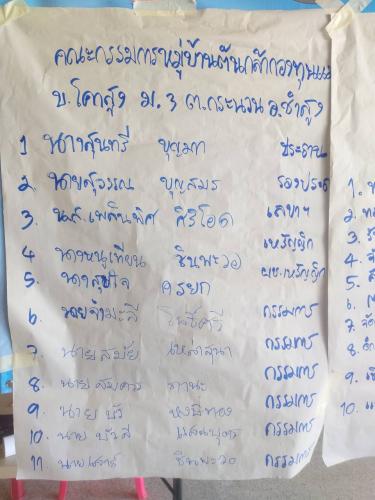 คณะกรรมการหมู่บ้านต้นกล้ากองทุนแม่
บ.โคกสูง ม.3 ต.กระนวน อ.ซำสูง
1 นางสุนทรี บุญมา ประธาน
2. นายสุวรรณ บุญสมร รองประธ
3. น.ส.เพลินพิศ ศิริโอด เลขาฯ
4 นางหนูเทียน ชินพะวอ เหรัญญิก
5. นางสุขใจ ผช.เหรัญญิก
6. นายจำมะลี กรรมการ
7. นายสมัย เหล่าสุนา กรรมการ
8. นายสมควร กรรมการ
9. นาย บัว หงษ์ทอง กรรมการ
10. นาย บัวลี แสนบุตร กรรมการ
11. ชินพะวอ กรรมการ